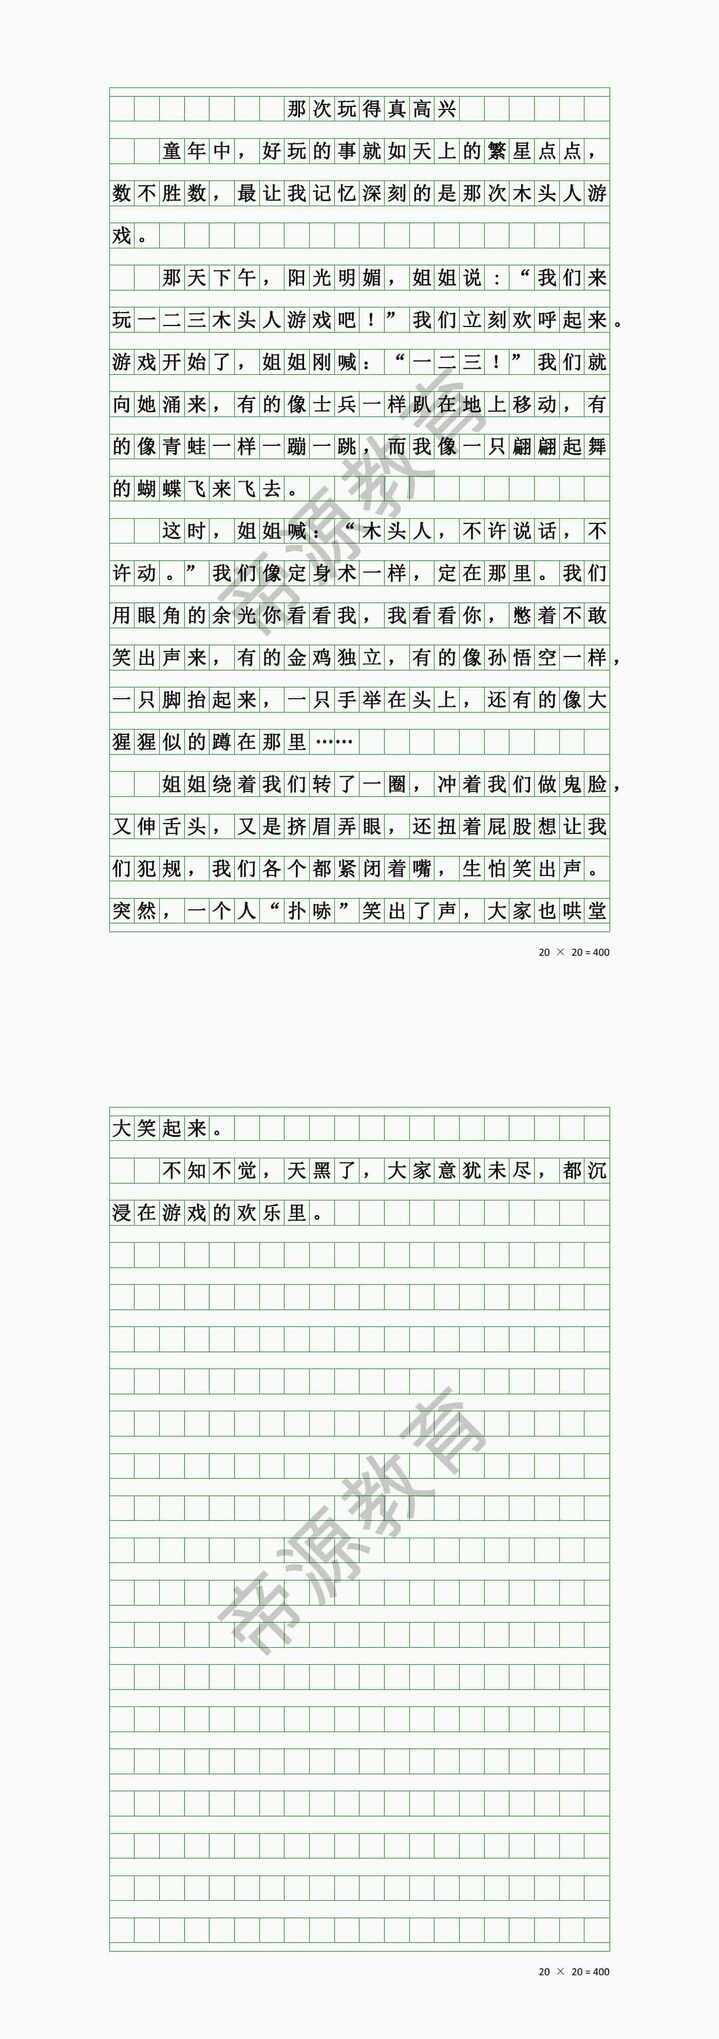 那次玩得真高兴
童年中，好玩的事就如天上的繁星点点，
数不胜数，最让我记忆深刻的是那次木头人游
戏。
那天下午，阳光明媚，姐姐说：“我们来
玩一二三木头人游戏吧！”我们立刻欢呼起来。
游戏开始了，姐姐刚喊：“一二三！”我们就
向她涌来，有的像士兵一样趴在地上移动，有
的像青蛙一样一蹦一跳，而我像一只翩翩起舞
的蝴蝶飞来飞去。
这时，姐姐喊：“木头人，不许说话，不
许动。”我们像定身术一样，定在那里。我们
用眼角的余光你看看我，我看看你，憋着不敢
笑出声来，有的金鸡独立，有的像孙悟空一样，
一只脚抬起来，一只手举在头上，还有的像大
猩猩似的蹲在那里……
姐姐绕着我们转了一圈，冲着我们做鬼脸，
又伸舌头，又是挤眉弄眼，还扭着屁股想让我
们犯规，我们各个都紧闭着嘴，生怕笑出声。
突然，一个人“扑哧”笑出了声，大家也哄堂
20 × 20＝400
大笑起来。
不知不觉，天黑了，大家意犹未尽，都沉
浸在游戏的欢乐里。
20 × 20＝400
帝源教育
帝源教育